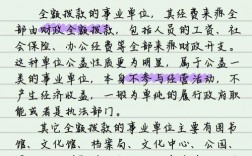 全额拨款的事业单位，其经费来源全
部由财政全额拨款，包括人员的工资、社
会保险、办公经费等全部来源财政开支。
这种单位公益性质更为明显，属于公益一
类的事业单位，本身不参与经营活动，不
产生经济收益，一般为单纯的履行政府职
能或者是执法部门。
其它全额拨款的事业单位主要有图书
馆、文化馆、档案局、文化中心、公园、